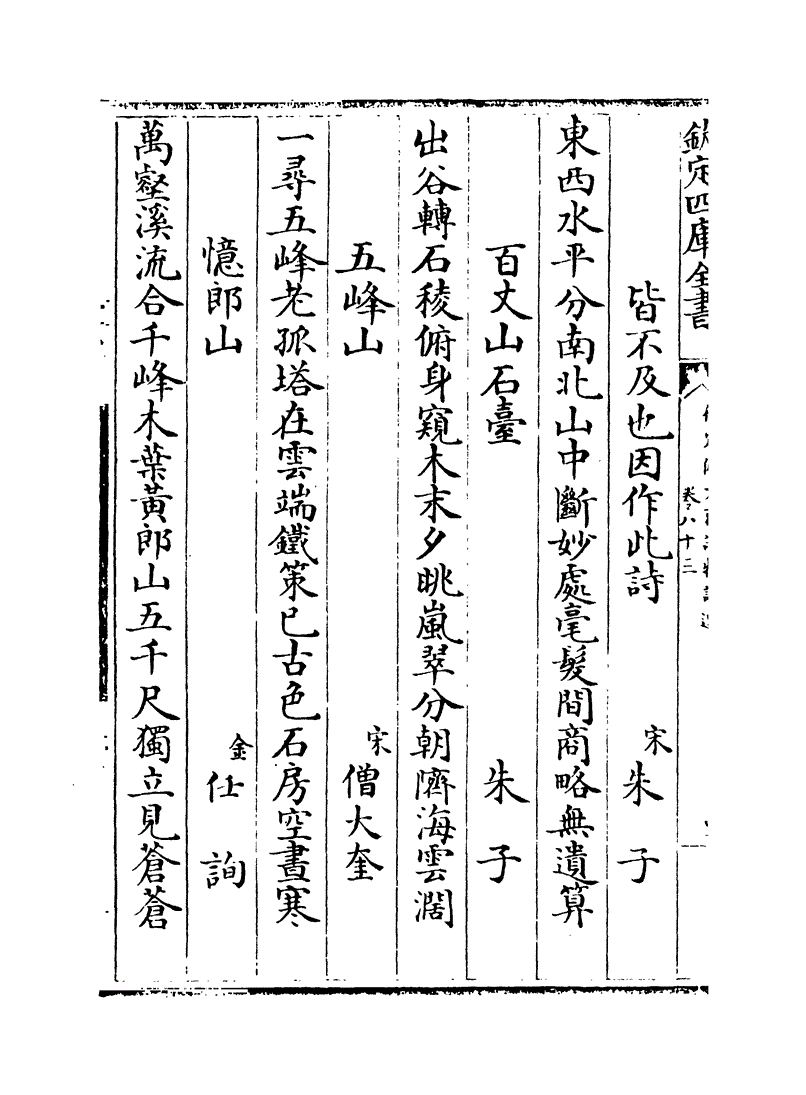 欽定四庫全書
卷八十二
皆不及也因作此詩
宋朱子
東西水平分南北山中斷妙處毫髮間商略無遺算
百丈山石臺
朱子
出谷轉石稜俯身窺木末夕眺嵐翠分朝隮海雲濶
五峰山
宋僧大奎
一尋五峰老孤塔在雲端鐵策已古色石房空晝寒
憶郎山
金任詢
萬壑溪流合千峰木葉黃郎山五千尺獨立見蒼蒼